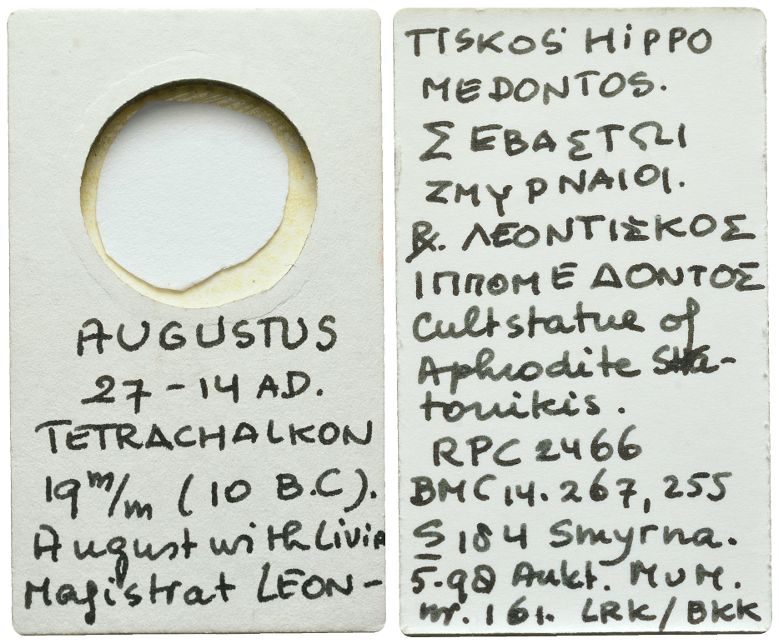 AUGUSTUS
27-14 A.D.
TETRACHALKON
19 m/m (10 B.C).
August with Livia
Magistrat LEON-
TISKOS HiPPO
MEDONTOS.
ΣΕΒΑΣΤΩΙ
ΖΜΥΡΝΑΙΟΙ.
R. ΛΕΟΝΤΙΣΚΟΣ
ΙΠΠΟΜΕΔΟΝΤΟΣ
Cultstatue of
Aphrodite Stra-
tonikis.
RPC 2466
BMC 14. 267, 255
S 184 Smyrna.
5-98 Aukt. M u M.
nr. 161. LRK/BKK